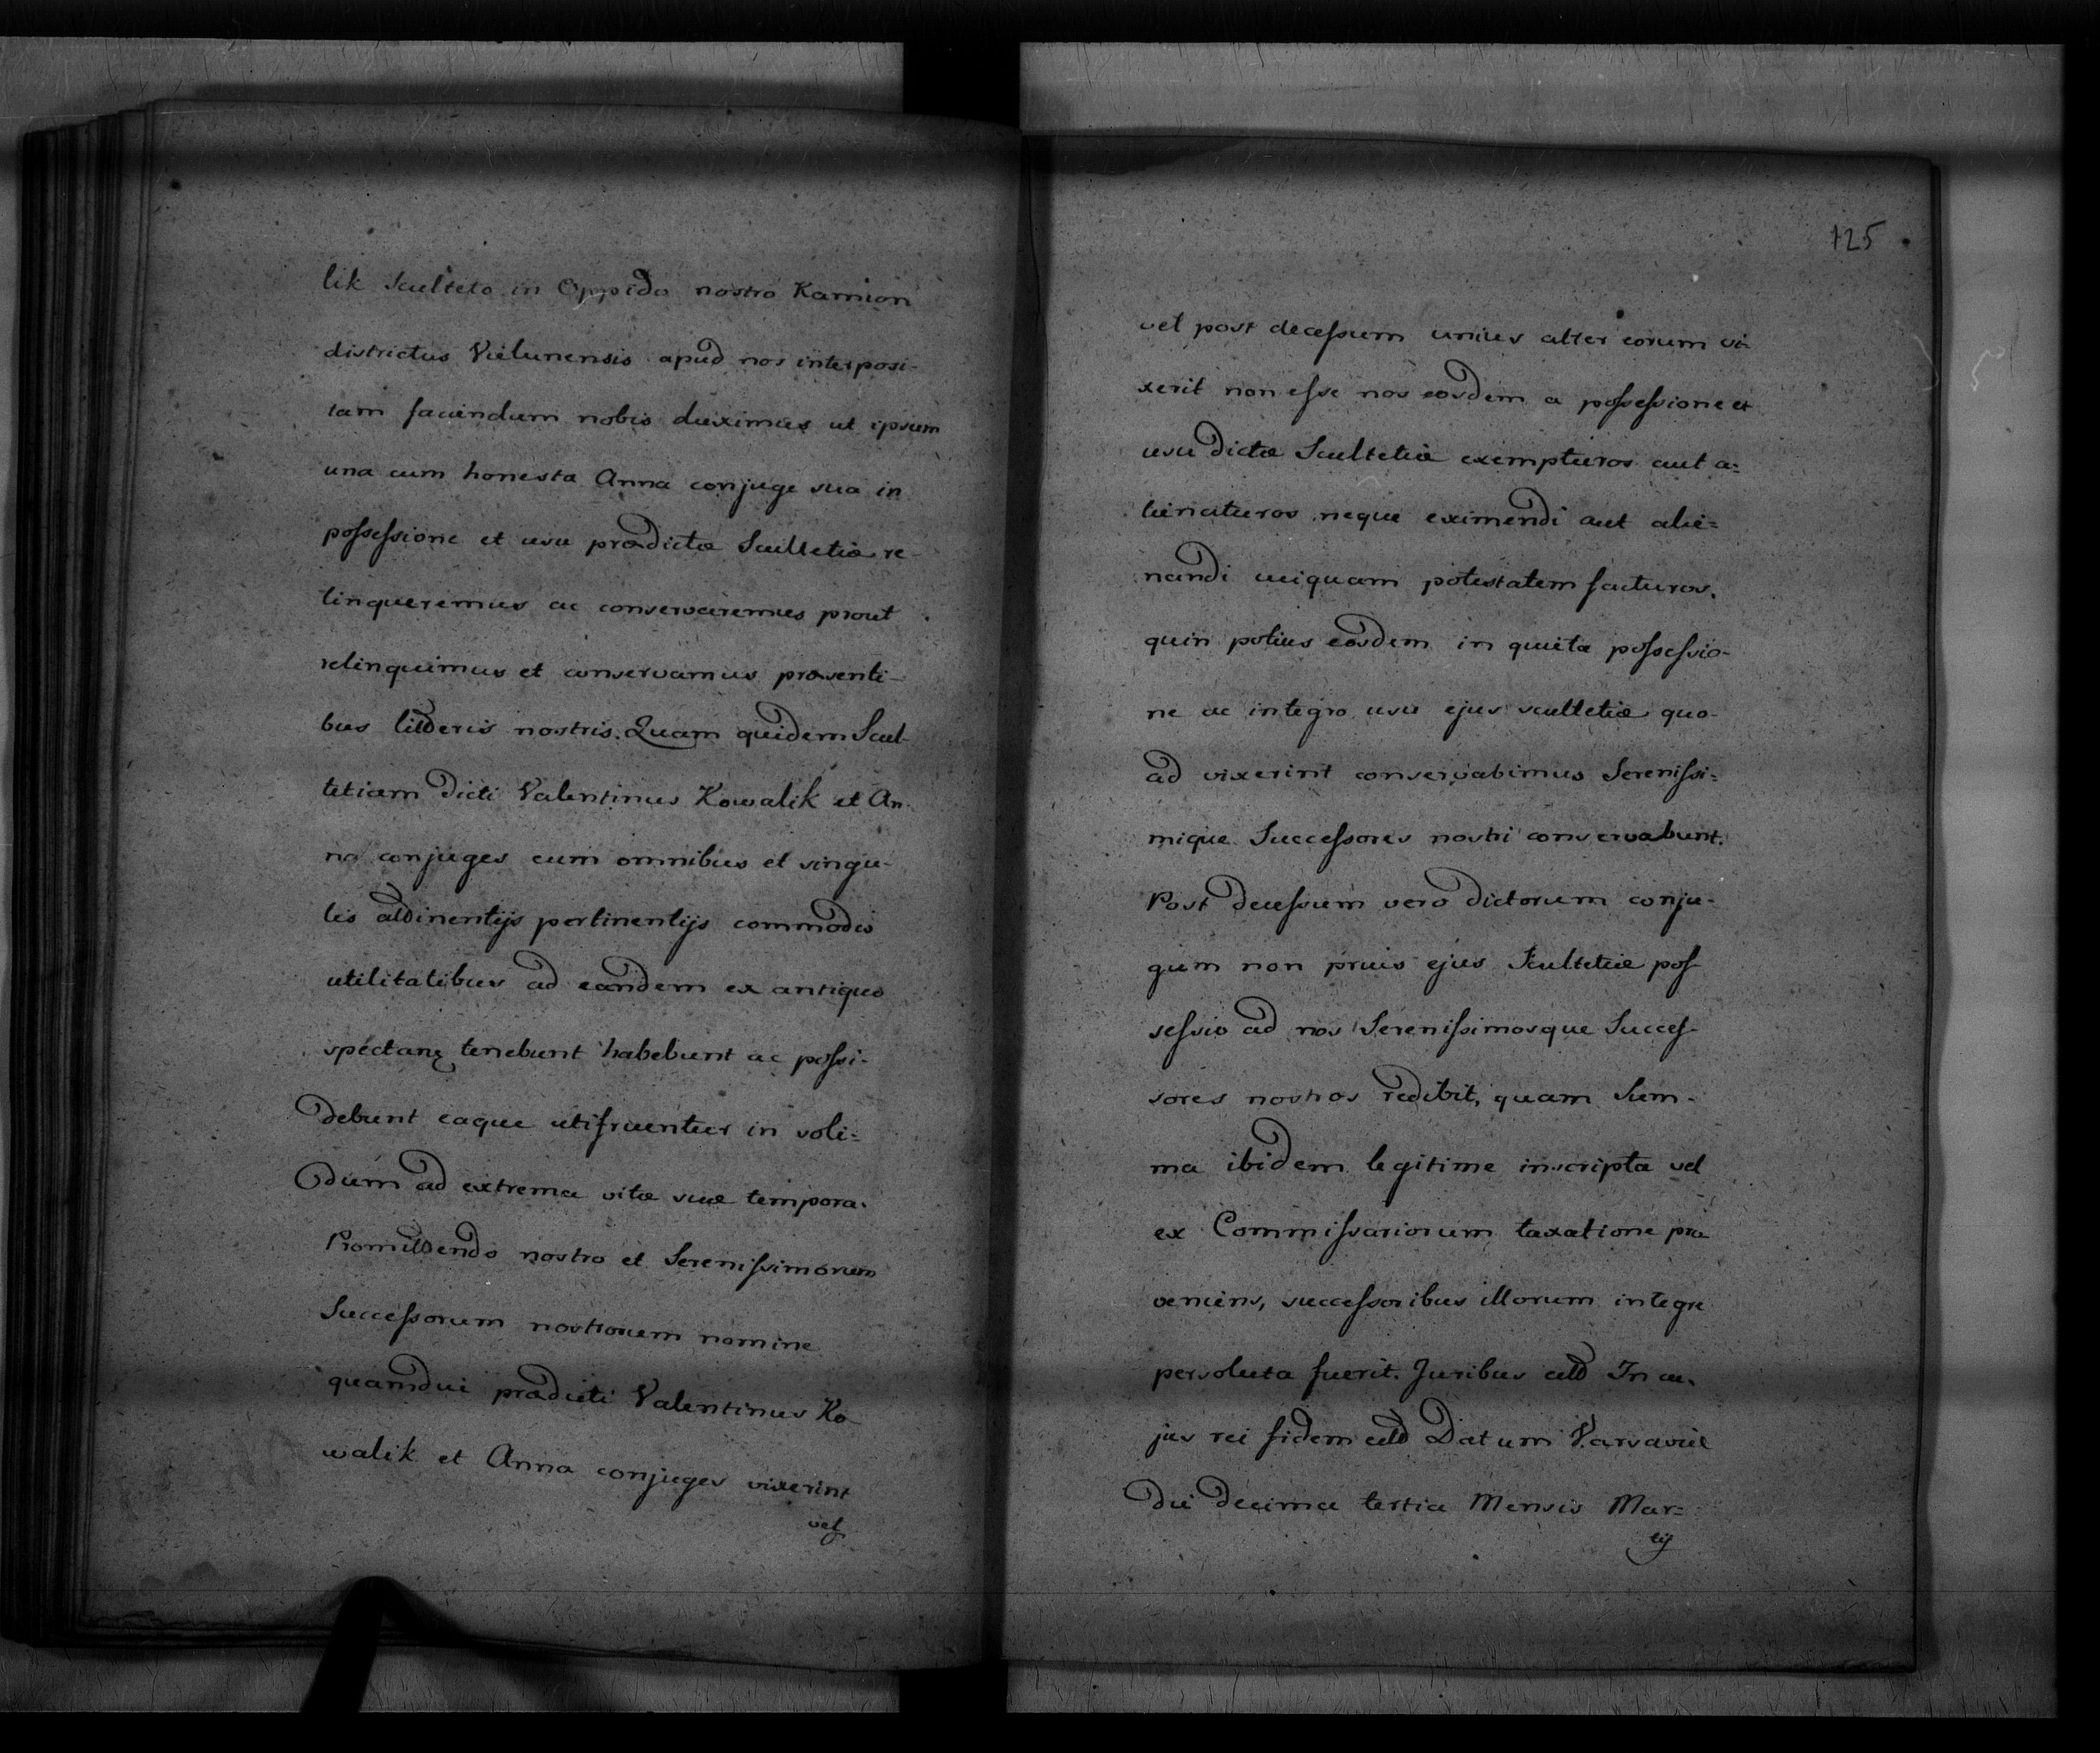 lik Sculteto in Oppido nostro Kamion
districtus Vielunensis apud nos interposi-
tam faciendum nobis duximus ut ipsum
una cum honesta Anna conjuge sua in
possessione et usu prædictæ Scultetiæ re-
linqueremus ac conservaremus prout
relinquimus et conservamus præsenti-
bus litteris nostris. Quam quidem Scul-
tetiam dicti Valentinus Kowalik et An-
na conjuges cum omnibus et singu-
lis attinentijs pertinentijs commodis
utilitatibus ad eandem ex antiquo
spectanę tenebunt habebunt ac possi-
debunt eaque utifruentur in soli=
dum ad extrema vitæ suæ tempora.
Promittendo nostro et Serenissimorum
Successorum nostrorum nomine
quamdui prædicti Valentinus Ko-
walik et Anna conjuges vixerint
vel
125
vel post decessum unius alter eorum vi-
xerit non esse nos eosdem a possessione et
usu dictæ Scultetiæ exempturos aut a=
lienaturos neque eximendi aut alie=
nandi cuiquam potestatem facturos.
quin potius eosdem in quieta possessio-
ne ac integro usu ejus scultetiæ quo-
ad vixerint conservabimus Serenissi=
mique Successores nostri conservabunt.
Post decessum vero dictorum conju-
gum non prius ejus Scultetiæ pos-
sessio ad nos Serenissimosque Succes-
sores nostros redibit, quam Sum-
ma ibidem legitime inscripta vel
ex Commissariorum taxatione pro
veniens, successoribus illorum integre
persoluta fuerit. Juribus ett In cu-
jus rei fidem ett Datum Varsaviæ
Die decima tertia Mensis Mar=
tij